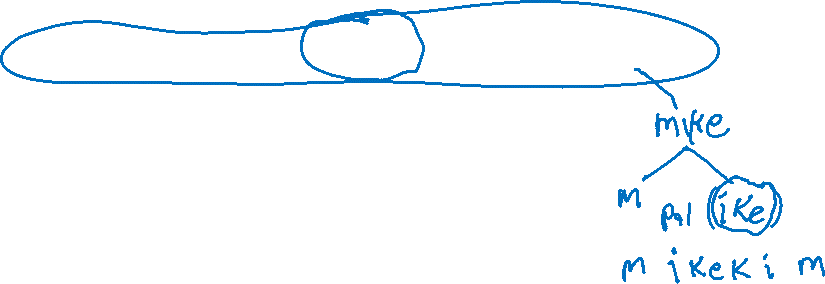 mike
m pal (ike)
m ikeki m